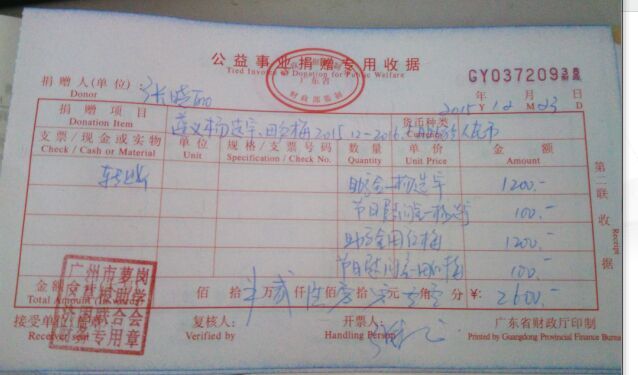 公益事业捐赠专用收据
Tied Invoice of Donation for Public Welfare
GY03720938
捐赠人(单位): 张晓
Donor
2015 年 12 月 23 日
Y M D
捐赠项目
Donation Item
遵义杨选宇、田红梅2015.12-2016.
货币种类
人民币
支票/现金或实物
Check / Cash or Material
单位
Unit
规格/支票号码
Specification / Check No.
数量
Quantity
单价
Unit Price
金额
Amount
转账 助学金-杨选宇 1200.-
节日慰问金-杨选宇 100.-
助学金-田红梅 1200.-
节日慰问金-田红梅 100.-
金额 佰 拾 万 贰 仟 陆 佰 零 拾 零 元 零 角 零 分 ¥: 2600.-
Total Amount
接受单位 复核人: 开票人: 广东省财政厅印制
Receiver Verified by Handling Person Printed by Guangdong Provincial Finance Bureau
第二联 收据
Receipt
广东省
财政部监制
广州市萝岗
助学
联合会
专用章